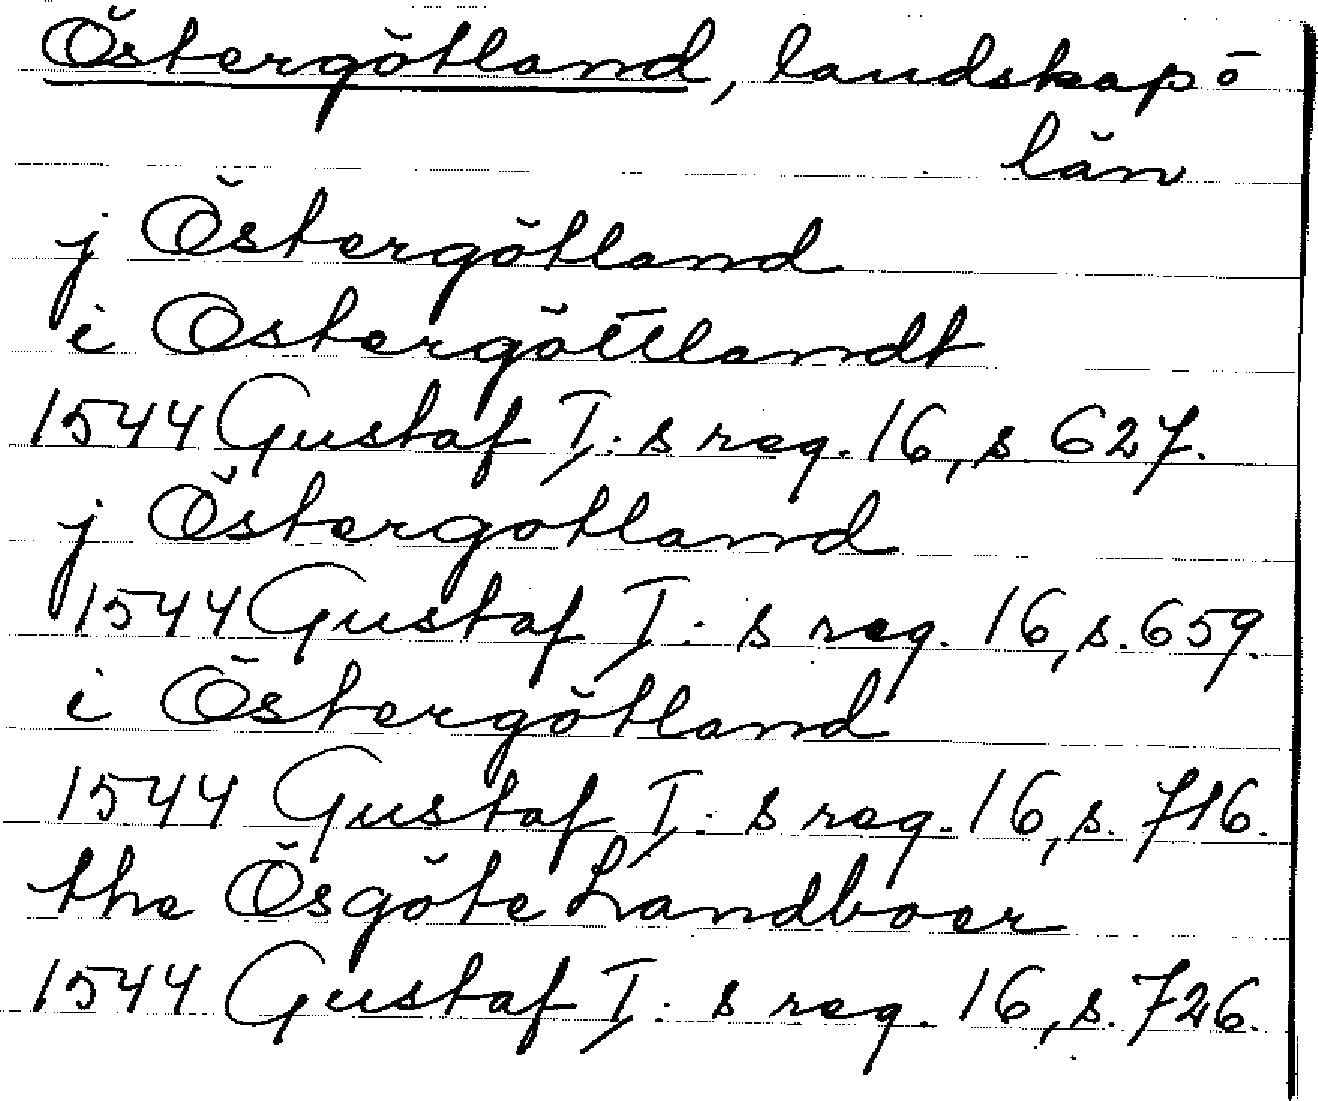 Östergötland, landskap o
län
j Östergötland
i Östergöttlandt
1544 Gustaf I:s reg. 16, s 627.
j Östergotland
1544 Gustaf I:s reg. 16, s. 659.
i Östergötland
1544 Gustaf I:s reg. 16, s. 716.
the Ösgöte Landboer
1544 Gustaf I:s reg. 16, s. 726.